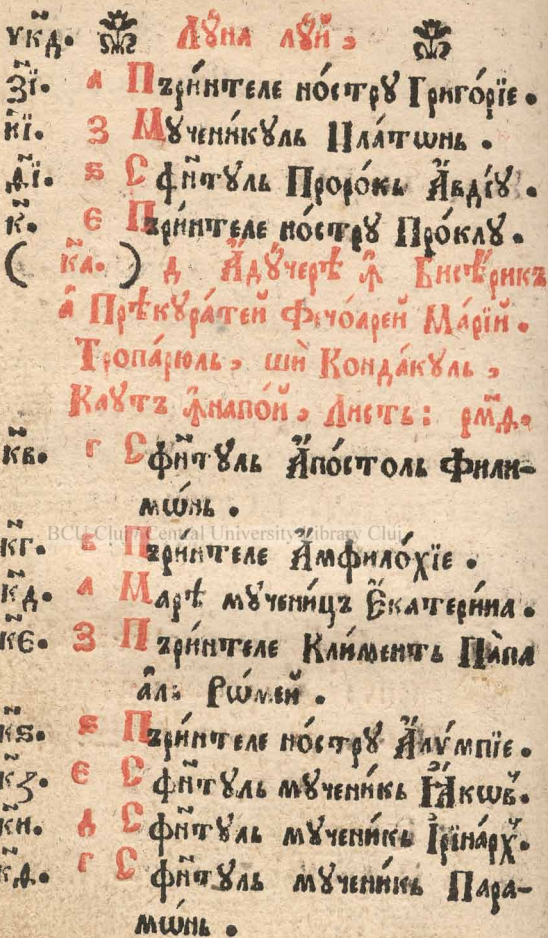 ѵ҃кд. Лꙋ́на лꙋй,
з҃і. а Пъри́нтеле но́стрꙋ Григо́рїе.
и҃і. з Мꙋчени́кꙋль Пла́тѡнь.
д҃і. ѕ Сфи҃тꙋль Проро́кь А҆вді́ꙋ.
к҃. є Пъри́нтеле но́стрꙋ Про́клꙋ.
( к҃а. ) д А҆дꙋ́черѣ ꙟ Бисѣ́рикъ
а҆ Прѣкꙋра́тей Фечоарей Марі́й.
Тропа́рюль, шѝ Конда́кꙋль,
Каꙋтъ ꙟнапо́й, Листь: рм҃д.
к҃в. г Сфи҃тꙋль А҆по́столь Фили-
мѡ́нь.
BCU Cluj / Central University Library Cluj
к҃г. в Пъри́нтеле А҆мфило́хїе.
к҃д. а Марѣ мꙋчени́цъ Є҆катери́на.
к҃є. з Пъри́нтеле Кли́ментъ Па̀па
а҆ль Рѡ́мей.
к҃ѕ. ѕ Пъри́нтеле но́стрꙋ А҆лѵ́мпїе.
к҃з. є Сфи҃тꙋль мꙋчени́кь І҆а́кѡв.
к҃и. д Сфи҃тꙋль мꙋчени́кь І҆рїна́рх.
к҃д. г Сфи҃тꙋль мꙋчени́кь Пара-
мѡ́нь.